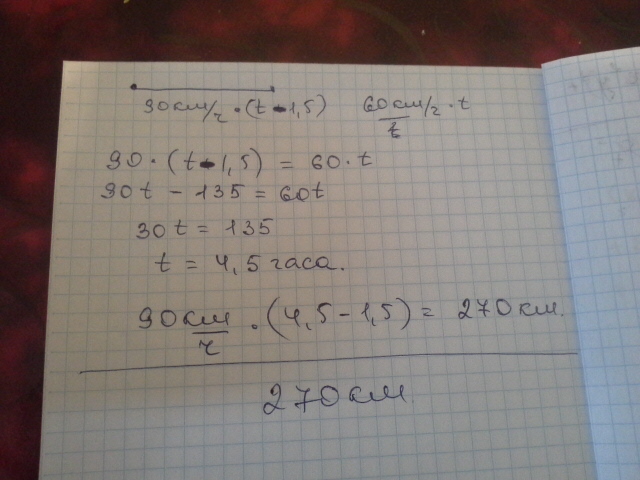 90км/ч · (t - 1,5) 60км/ч · t
t
90 · (t - 1,5) = 60 · t
90t - 135 = 60t
30t = 135
t = 4,5 часа.
90 км/ч · (4,5 - 1,5) = 270 км.
270 км